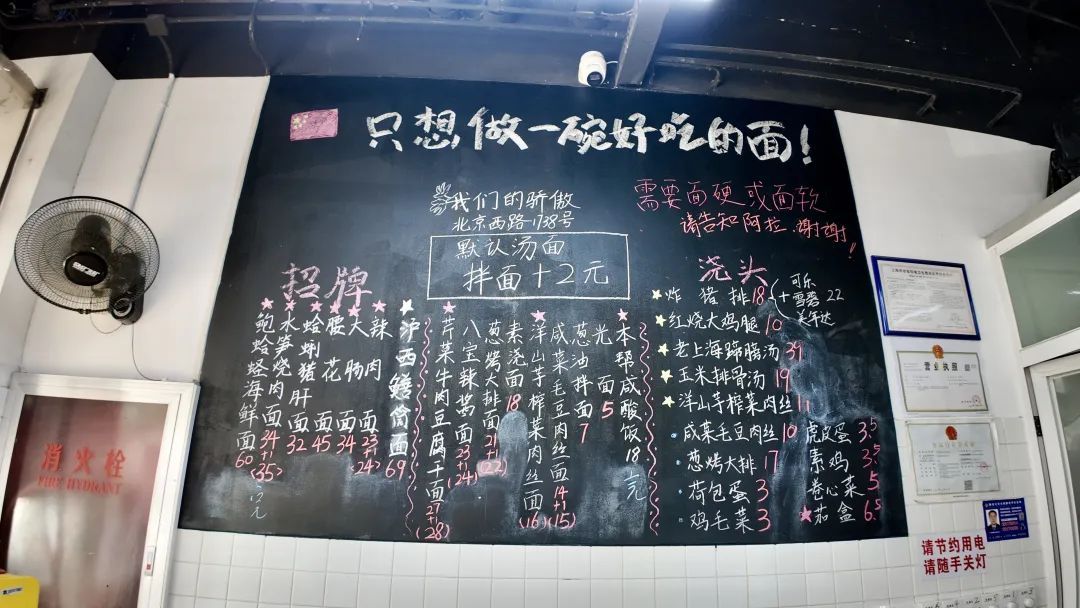 只想做一碗好吃的面!
我们的骄傲
北京西路1738号
默认汤面
拌面+2元
需要面硬或面软
请告知阿拉 谢谢!
招牌
鲍蛤蛏海鲜面60
水笋烧肉面34+1(35)元
蛤蜊猪肝面32
腰花面45
大肠面34
辣肉面23+1(24)
沪西鳝面69
芹菜牛肉豆腐干面27+1(28)
八宝辣酱面23+1(24)
葱烤大排面21+1(22)
素浇面18
洋山芋榨菜肉丝面(16)
咸菜毛豆肉丝面14+1(15)
葱油拌面7
光面5
本帮咸酸饭18元
浇头
炸猪排18+可乐 雪碧 美年达 22
红烧大鸡腿10
老上海蹄髈汤39
玉米排骨汤19
洋山芋榨菜肉丝11
咸菜毛豆肉丝10
葱烤大排17
荷包蛋3
鸡毛菜3
虎皮蛋3.5
素鸡3.5
卷心菜5
茄盒6.5
营业执照
请节约用电
请随手关灯
消火栓
FIRE HYDRANT